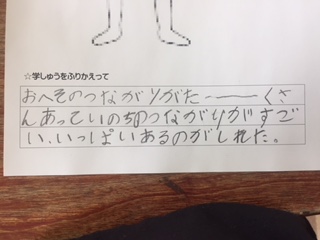 ☆学しゅうをふりかえって
おへそのつながりがた―――くさ
んあっていのちのつながりがすご
い、いっぱいあるのがしれた。